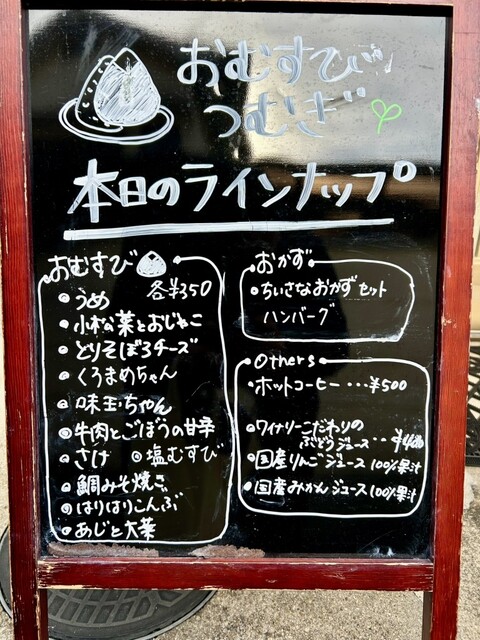 おむすび
つむぎ
本日のラインナップ
おむすび
各¥350
うめ
小松菜とおじゃこ
とりそぼろチーズ
くろまめちゃん
味玉ちゃん
牛肉とごぼうの甘辛
さけ ◎塩むすび
鯛みそ焼き
はりはりこんぶ
あじと大葉
おかず
ちいさなおかずセット
ハンバーグ
Others
ホットコーヒー・・・¥500
ワイナリーこだわりの
ぶどうジュース・・・
国産りんごジュース100%果汁
国産みかんジュース100%果汁